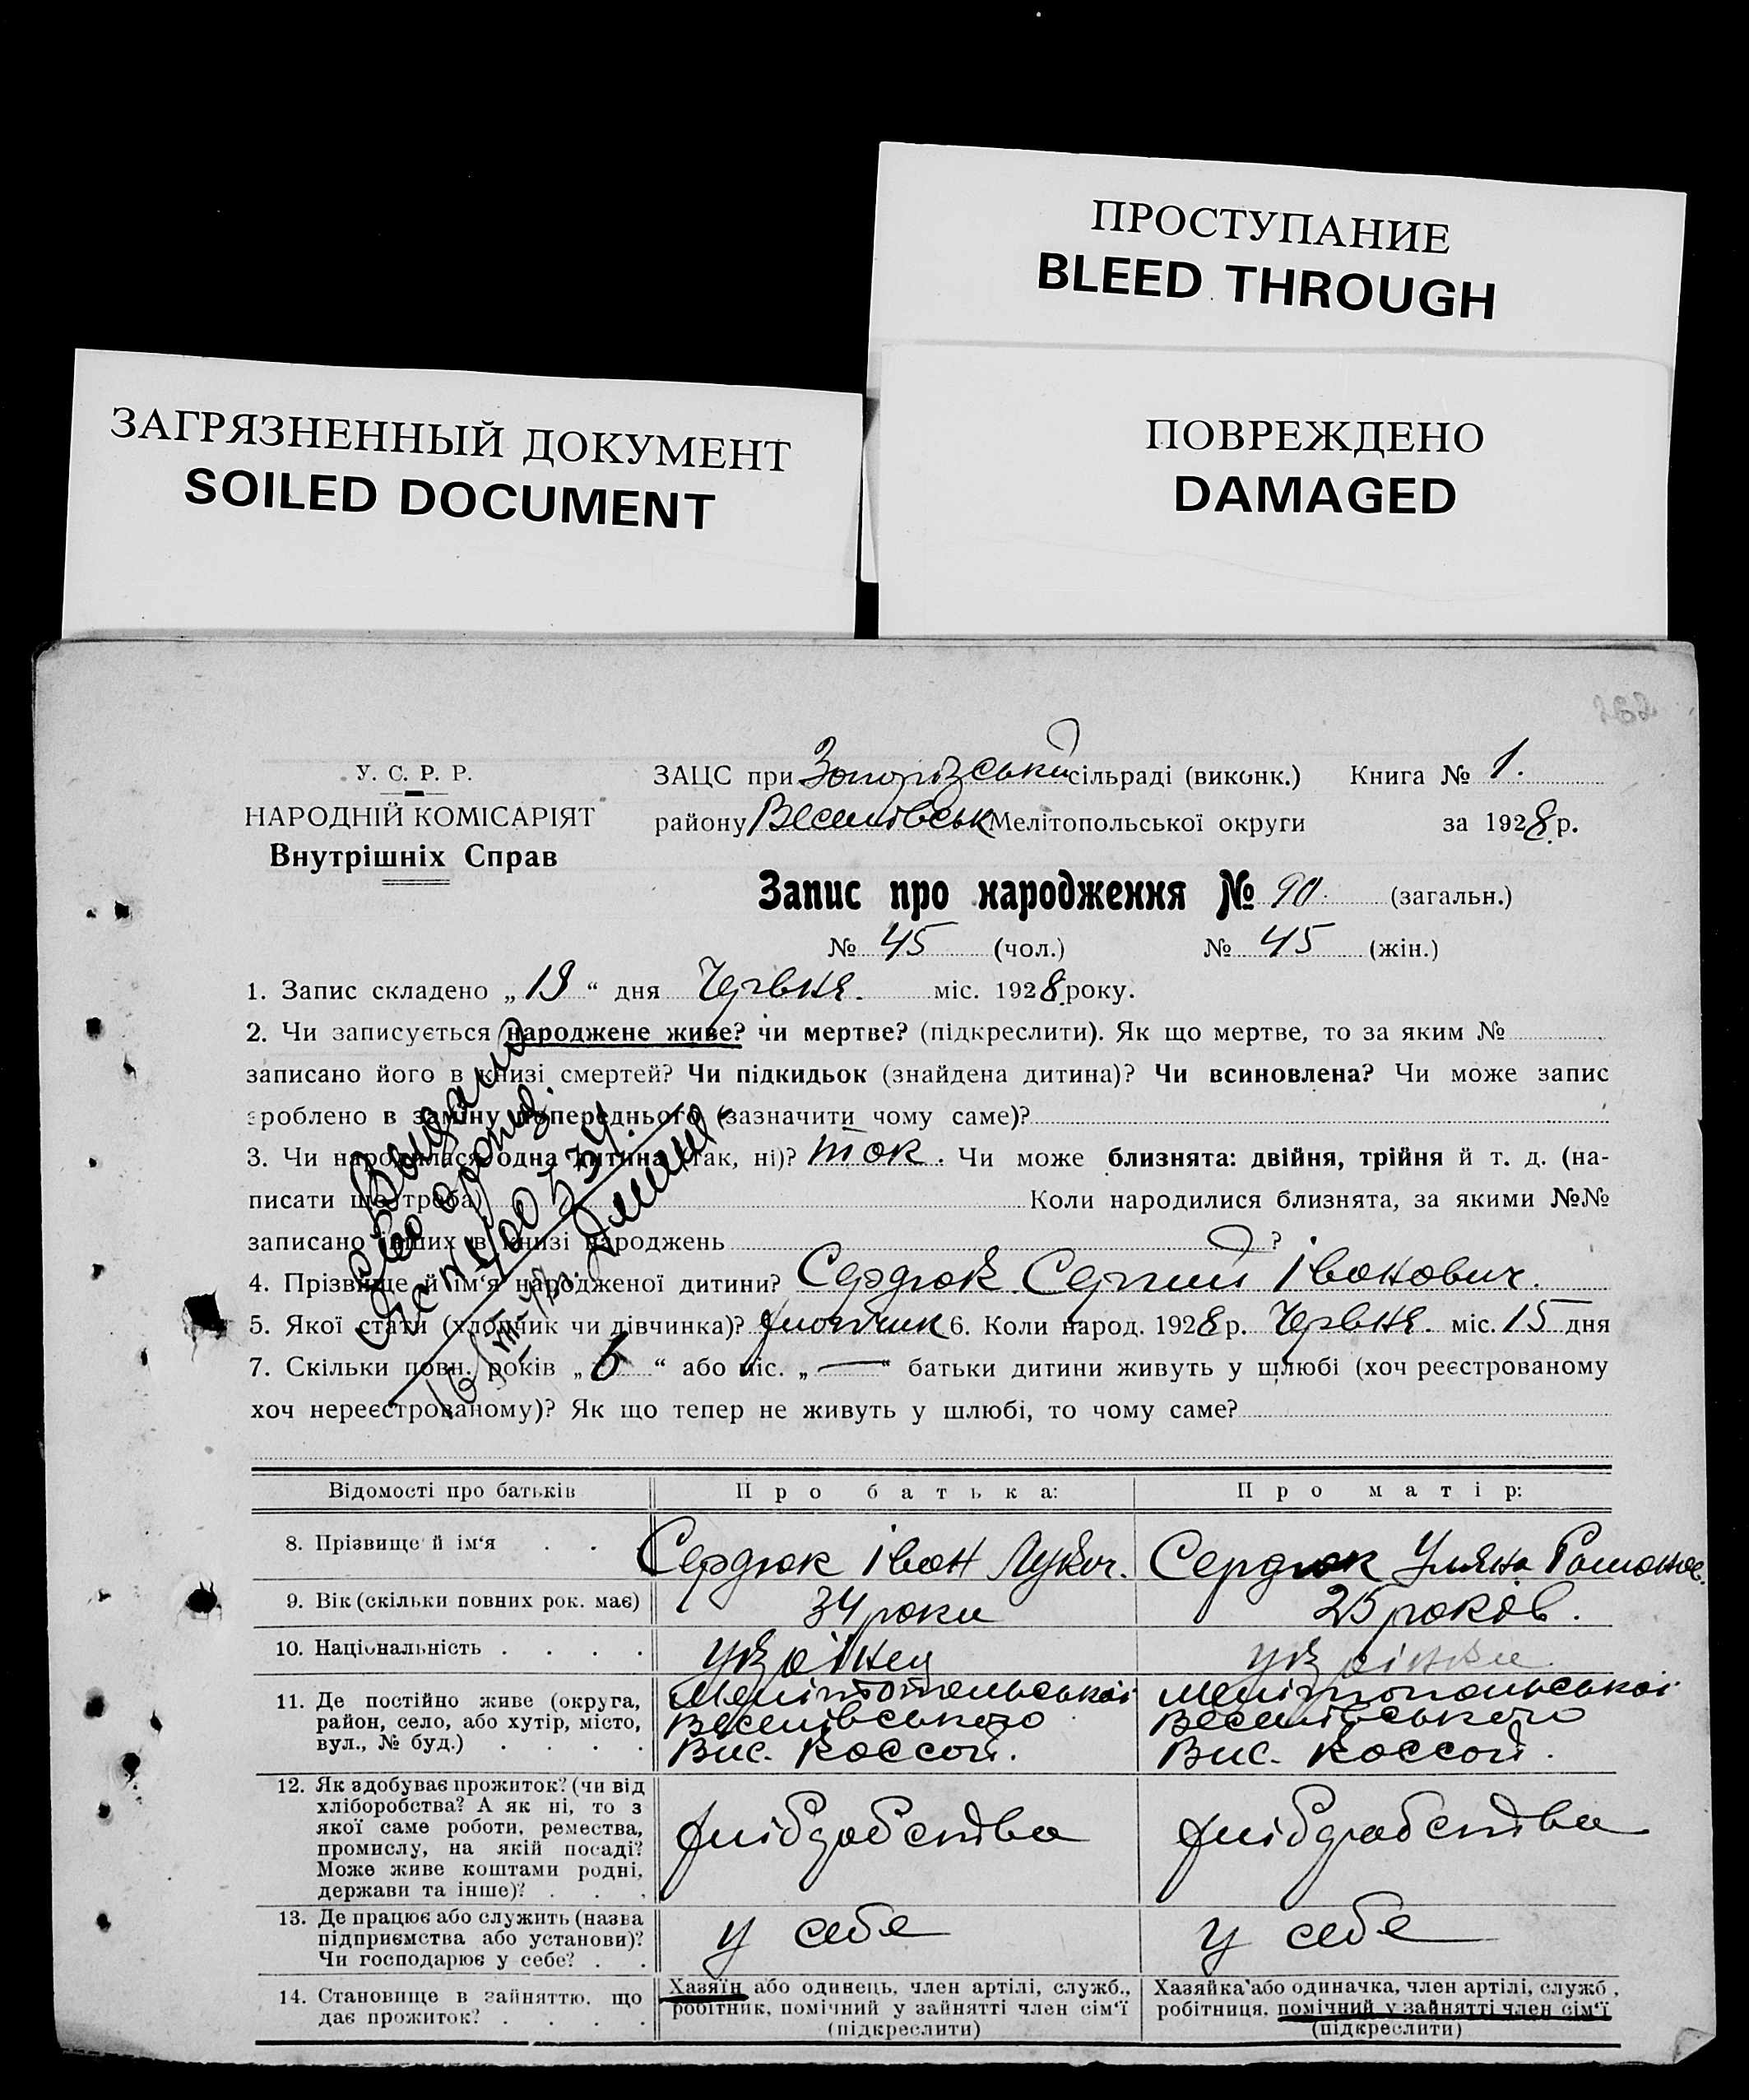 ПРОСТУПАНИЕ
BLEED THROUGH
ЗАГРЯЗНЕННЫЙ ДОКУМЕНТ
SOILED DOCUMENT
ПОВРЕЖДЕНО
DAMAGED
У. С. Р. Р.
НАРОДНІЙ КОМІСАРІЯТ
Внутрішніх Справ
ЗАЦС при сільраді (виконк.) Книга № 1.
району Веселівськ Мелітопольської округи за 1928 р.
Запис про народження № 90. (загальн.)
№ 45 (чол.) № 45 (жін.)
1. Запис складено „ “ дня Червня. міс. 1928 року.
2. Чи записується народжене живе? чи мертве? (підкреслити). Як що мертве, то за яким №
записано його в книзі смертей? Чи підкидьок (знайдена дитина)? Чи всиновлена? Чи може запис
зроблено в заміну попереднього (зазначити чому саме)?
3. Чи народилася одна дитина (так, ні)? так. Чи може близнята: двійня, трійня й т. д. (на-
писати що треба) Коли народилися близнята, за якими №№
записано інших в книзі народжень ?
4. Прізвище й ім‘я народженої дитини? Сердюк Сергій Іванович.
5. Якої стати (хлопчик чи дівчинка)? хлопчик 6. Коли народ. 1928 р. Червня. міс. 15 дня
7. Скільки повн. років „6“ або міс. „—“ батьки дитини живуть у шлюбі (хоч реєстрованому
хоч нереєстрованому)? Як що тепер не живуть у шлюбі, то чому саме?
Відомості про батьків Про батька: Про матір:
8. Прізвище й ім‘я . . Сердюк Іван Лукич. Сердюк Уляна Романов.
9. Вік (скільки повних рок. має) 34 роки 25 років.
10. Національність . . . . українец українка
11. Де постійно живе (округа,
район, село, або хутір, місто,
вул., № буд.) . . . .
Мелітопольської
Веселівського
Вис.
Мелітопольської
Веселівського
Вис.
12. Як здобуває прожиток? (чи від
хліборобства? А як ні, то з
якої саме роботи, ремества,
промислу, на якій посаді?
Може живе коштами родні,
держави та інше)? . . .
хлібробства
хлібробства
13. Де працює або служить (назва
підприємства або установи)?
Чи господарює у себе? . .
у себе
у себе
14. Становище в зайняттю, що
дає прожиток? . . . .
Хазяїн або одинець, член артілі, служб.,
робітник, помічний у зайнятті член сім‘ї
(підкреслити)
Хазяйка або одиначка, член артілі, служб.,
робітниця, помічний у зайнятті член сім‘ї
(підкреслити)